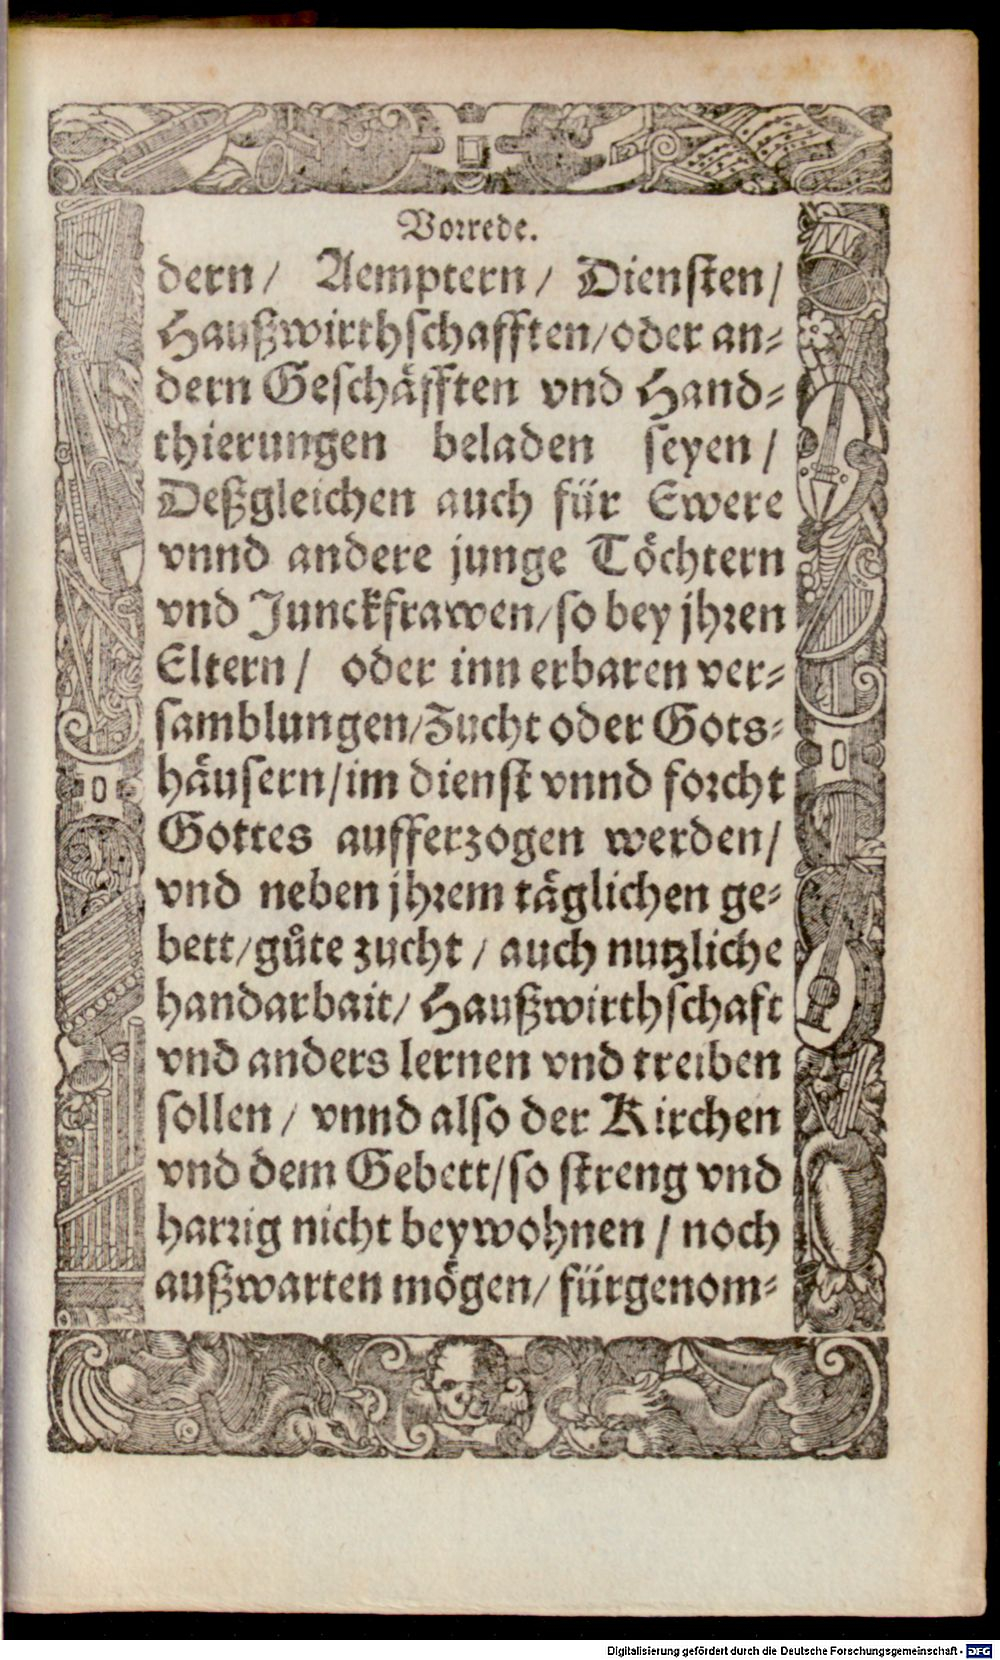 Vorrede.
dern/ Aemptern/ Diensten/
Haußwirthschafften/oder an=
dern Geschäfften vnd Hand=
thierungen beladen seyen/
Deßgleichen auch für Ewere
vnnd andere junge Töchtern
vnd Junckfrawen/so bey jhren
Eltern/ oder inn erbaren ver=
samblungen/Zucht oder Gots=
häusern/im dienst vnnd forcht
Gottes aufferzogen werden/
vnd neben jhrem täglichen ge=
bett/gůte zucht/ auch nutzliche
handarbait/ Haußwirthschaft
vnd anders lernen vnd treiben
sollen/ vnnd also der Kirchen
vnd dem Gebett/so streng vnd
harrig nicht beywohnen/ noch
außwarten mögen/ fürgenom=
Digitalisierung gefördert durch die Deutsche Forschungsgemeinschaft - DFG